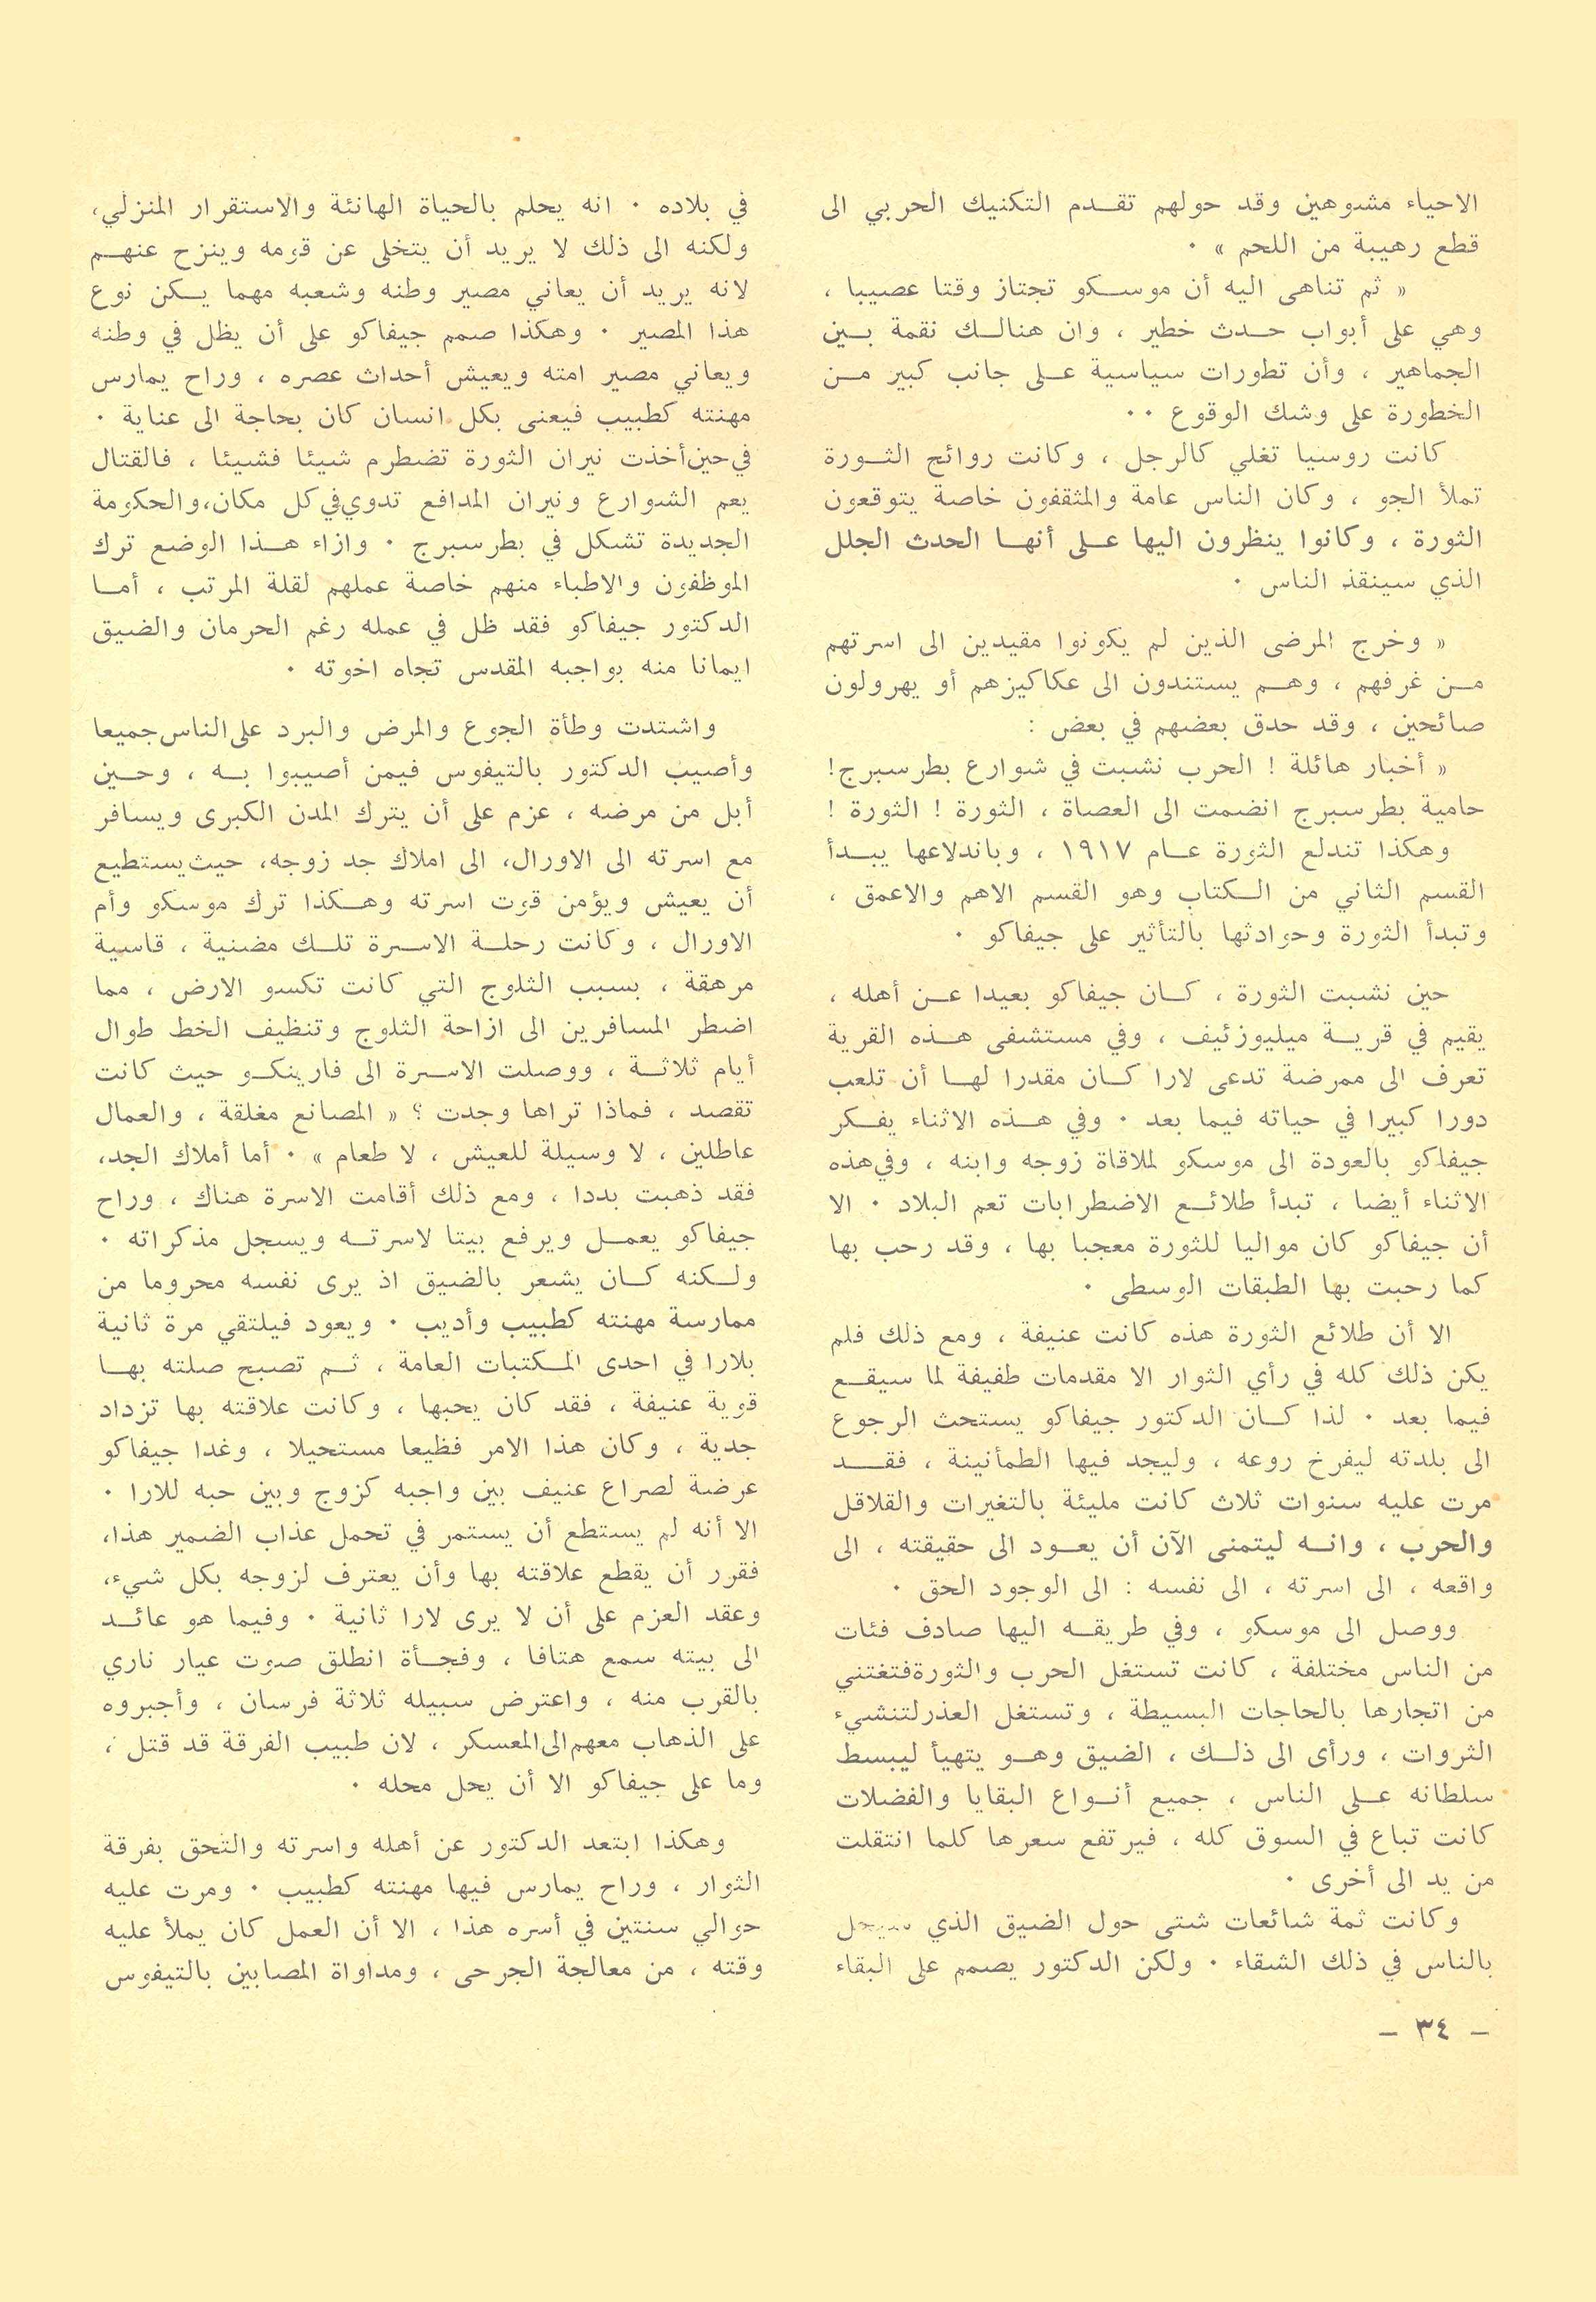 الاحياء مشوهين وقد حولهم تقدم التكنيك الحربي الى
قطع رهيبة من اللحم » ٠
« ثم تناهى اليه أن موسكو تجتاز وقتا عصيبا ،
وهي على أبواب حدث خطير ، وان هنالك نقمة بين
الجماهير ، وأن تطورات سياسية على جانب كبير من
الخطورة على وشك الوقوع ٠٠
كانت روسيا تغلي كالرجل ، وكانت روائح الثورة
تملأ الجو ، وكان الناس عامة والمثقفون خاصة يتوقعون
الثورة ، وكانوا ينظرون اليها على أنها الحدث الجلل
الذي سينقذ الناس ٠
« وخرج المرضى الذين لم يكونوا مقيدين الى اسرتهم
من غرفهم ، وهم يستندون الى عكاكيزهم أو يهرولون
صائحين ، وقد حدق بعضهم في بعض :
« أخبار هائلة ! الحرب نشبت في شوارع بطرسبرج!
حامية بطرسبرج انضمت الى العصاة ، الثورة ! الثورة !
وهكذا تندلع الثورة عام ١٩١٧ ، وباندلاعها يبدأ
القسم الثاني من الكتاب وهو القسم الاهم والاعمق ،
وتبدأ الثورة وحوادثها بالتأثير على جيفاكو ٠
حين نشبت الثورة ، كان جيفاكو بعيدا عن أهله ،
يقيم في قرية ميليوزئيف ، وفي مستشفى هذه القرية
تعرف الى ممرضة تدعى لارا كان مقدرا لها أن تلعب
دورا كبيرا في حياته فيما بعد ٠ وفي هذه الاثناء يفكر
جيفاكو بالعودة الى موسكو لملاقاة زوجه وابنه ، وفي هذه
الاثناء أيضا ، تبدأ طلائع الاضطرابات تعم البلاد ٠ الا
أن جيفاكو كان مواليا للثورة معجبا بها ، وقد رحب بها
كما رحبت بها الطبقات الوسطى ٠
الا أن طلائع الثورة هذه كانت عنيفة ، ومع ذلك فلم
يكن ذلك كله في رأي الثوار الا مقدمات طفيفة لما سيقع
فيما بعد ٠ لذا كان الدكتور جيفاكو يستحث الرجوع
الى بلدته ليفرخ روعه ، وليجد فيها الطمأنينة ، فقد
مرت عليه سنوات ثلاث كانت مليئة بالتغيرات والقلاقل
والحرب ، وانه ليتمنى الآن أن يعود الى حقيقته ، الى
واقعه ، الى اسرته ، الى نفسه : الى الوجود الحق ٠
ووصل الى موسكو ، وفي طريقه اليها صادف فئات
من الناس مختلفة ، كانت تستغل الحرب والثورة فتغتني
من اتجارها بالحاجات البسيطة ، وتستغل العذر لتنشيء
الثروات ، ورأى الى ذلك ، الضيق وهو يتهيأ ليبسط
سلطانه على الناس ، جميع أنواع البقايا والفضلات
كانت تباع في السوق كله ، فيرتفع سعرها كلما انتقلت
من يد الى أخرى ٠
وكانت ثمة شائعات شتى حول الضيق الذي سيحل
بالناس في ذلك الشقاء ٠ ولكن الدكتور يصمم على البقاء
في بلاده ٠ انه يحلم بالحياة الهانئة والاستقرار المنزلي،
ولكنه الى ذلك لا يريد أن يتخلى عن قومه وينزح عنهم
لانه يريد أن يعاني مصير وطنه وشعبه مهما يكن نوع
هذا المصير ٠ وهكذا صمم جيفاكو على أن يظل في وطنه
ويعاني مصير امته ويعيش أحداث عصره ، وراح يمارس
مهنته كطبيب فيعنى بكل انسان كان بحاجة الى عناية ٠
في حين أخذت نيران الثورة تضطرم شيئا فشيئا ، فالقتال
يعم الشوارع ونيران المدافع تدوي في كل مكان، والحكومة
الجديدة تشكل في بطرسبرج ٠ وازاء هذا الوضع ترك
الموظفون والاطباء منهم خاصة عملهم لقلة المرتب ، أما
الدكتور جيفاكو فقد ظل في عمله رغم الحرمان والضيق
ايمانا منه بواجبه المقدس تجاه اخوته ٠
واشتدت وطأة الجوع والمرض والبرد على الناس جميعا
وأصيب الدكتور بالتيفوس فيمن أصيبوا به ، وحين
أبل من مرضه ، عزم على أن يترك المدن الكبرى ويسافر
مع اسرته الى الاورال، الى املاك جد زوجه، حيث يستطيع
أن يعيش ويؤمن قوت اسرته وهكذا ترك موسكو وأم
الاورال ، وكانت رحلة الاسرة تلك مضنية ، قاسية
مرهقة ، بسبب الثلوج التي كانت تكسو الارض ، مما
اضطر المسافرين الى ازاحة الثلوج وتنظيف الخط طوال
أيام ثلاثة ، ووصلت الاسرة الى فارينكو حيث كانت
تقصد ، فماذا تراها وجدت ؟ « المصانع مغلقة ، والعمال
عاطلين ، لا وسيلة للعيش ، لا طعام » ٠ أما أملاك الجد،
فقد ذهبت بددا ، ومع ذلك أقامت الاسرة هناك ، وراح
جيفاكو يعمل ويرفع بيتا لاسرته ويسجل مذكراته ٠
ولكنه كان يشعر بالضيق اذ يرى نفسه محروما من
ممارسة مهنته كطبيب وأديب ٠ ويعود فيلتقي مرة ثانية
بلارا في احدى المكتبات العامة ، ثم تصبح صلته بها
قوية عنيفة ، فقد كان يحبها ، وكانت علاقته بها تزداد
جدية ، وكان هذا الامر فظيعا مستحيلا ، وغدا جيفاكو
عرضة لصراع عنيف بين واجبه كزوج وبين حبه للارا ٠
الا أنه لم يستطع أن يستمر في تحمل عذاب الضمير هذا،
فقرر أن يقطع علاقته بها وأن يعترف لزوجه بكل شيء،
وعقد العزم على أن لا يرى لارا ثانية ٠ وفيما هو عائد
الى بيته سمع هتافا ، وفجأة انطلق صوت عيار ناري
بالقرب منه ، واعترض سبيله ثلاثة فرسان ، وأجبروه
على الذهاب معهم الى المعسكر ، لان طبيب الفرقة قد قتل ،
وما على جيفاكو الا أن يحل محله ٠
وهكذا ابتعد الدكتور عن أهله واسرته والتحق بفرقة
الثوار ، وراح يمارس فيها مهنته كطبيب ٠ ومرت عليه
حوالي سنتين في أسره هذا ، الا أن العمل كان يملأ عليه
وقته ، من معالجة الجرحى ، ومداواة المصابين بالتيفوس
– ٣٤ –